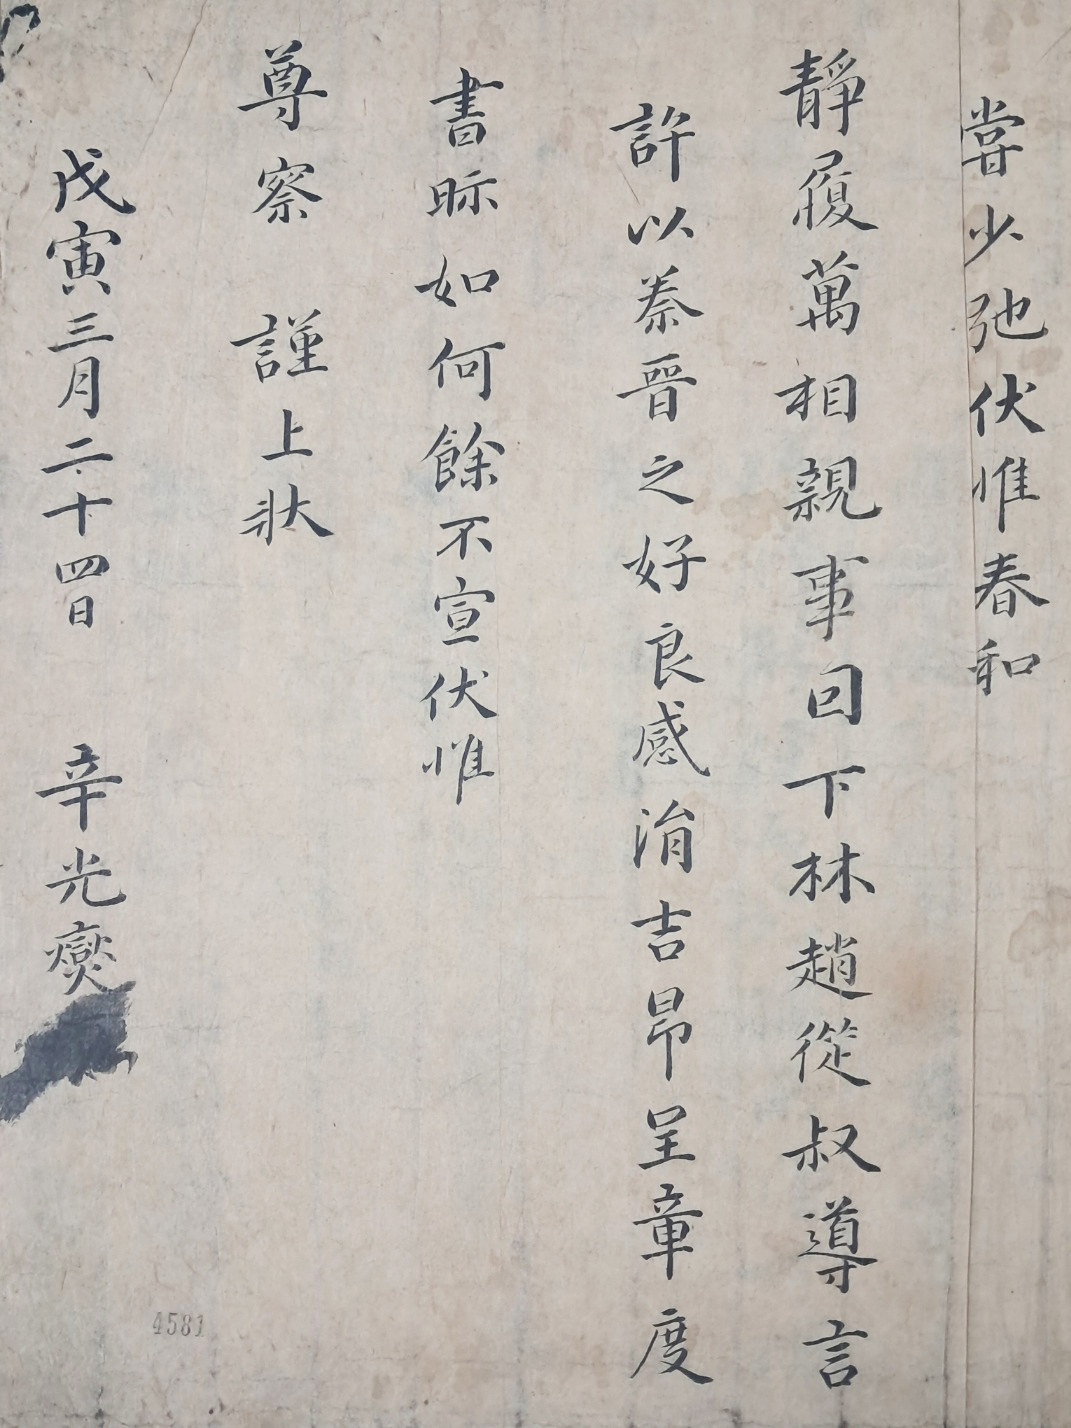 嘗少弛伏惟春和
靜履萬相親事回下林趙從叔導言
許以秦晉之好良感涓吉昻呈章度
書眎如何餘不宣伏惟
尊察 謹上狀
戊寅三月二十四日 辛光
4581